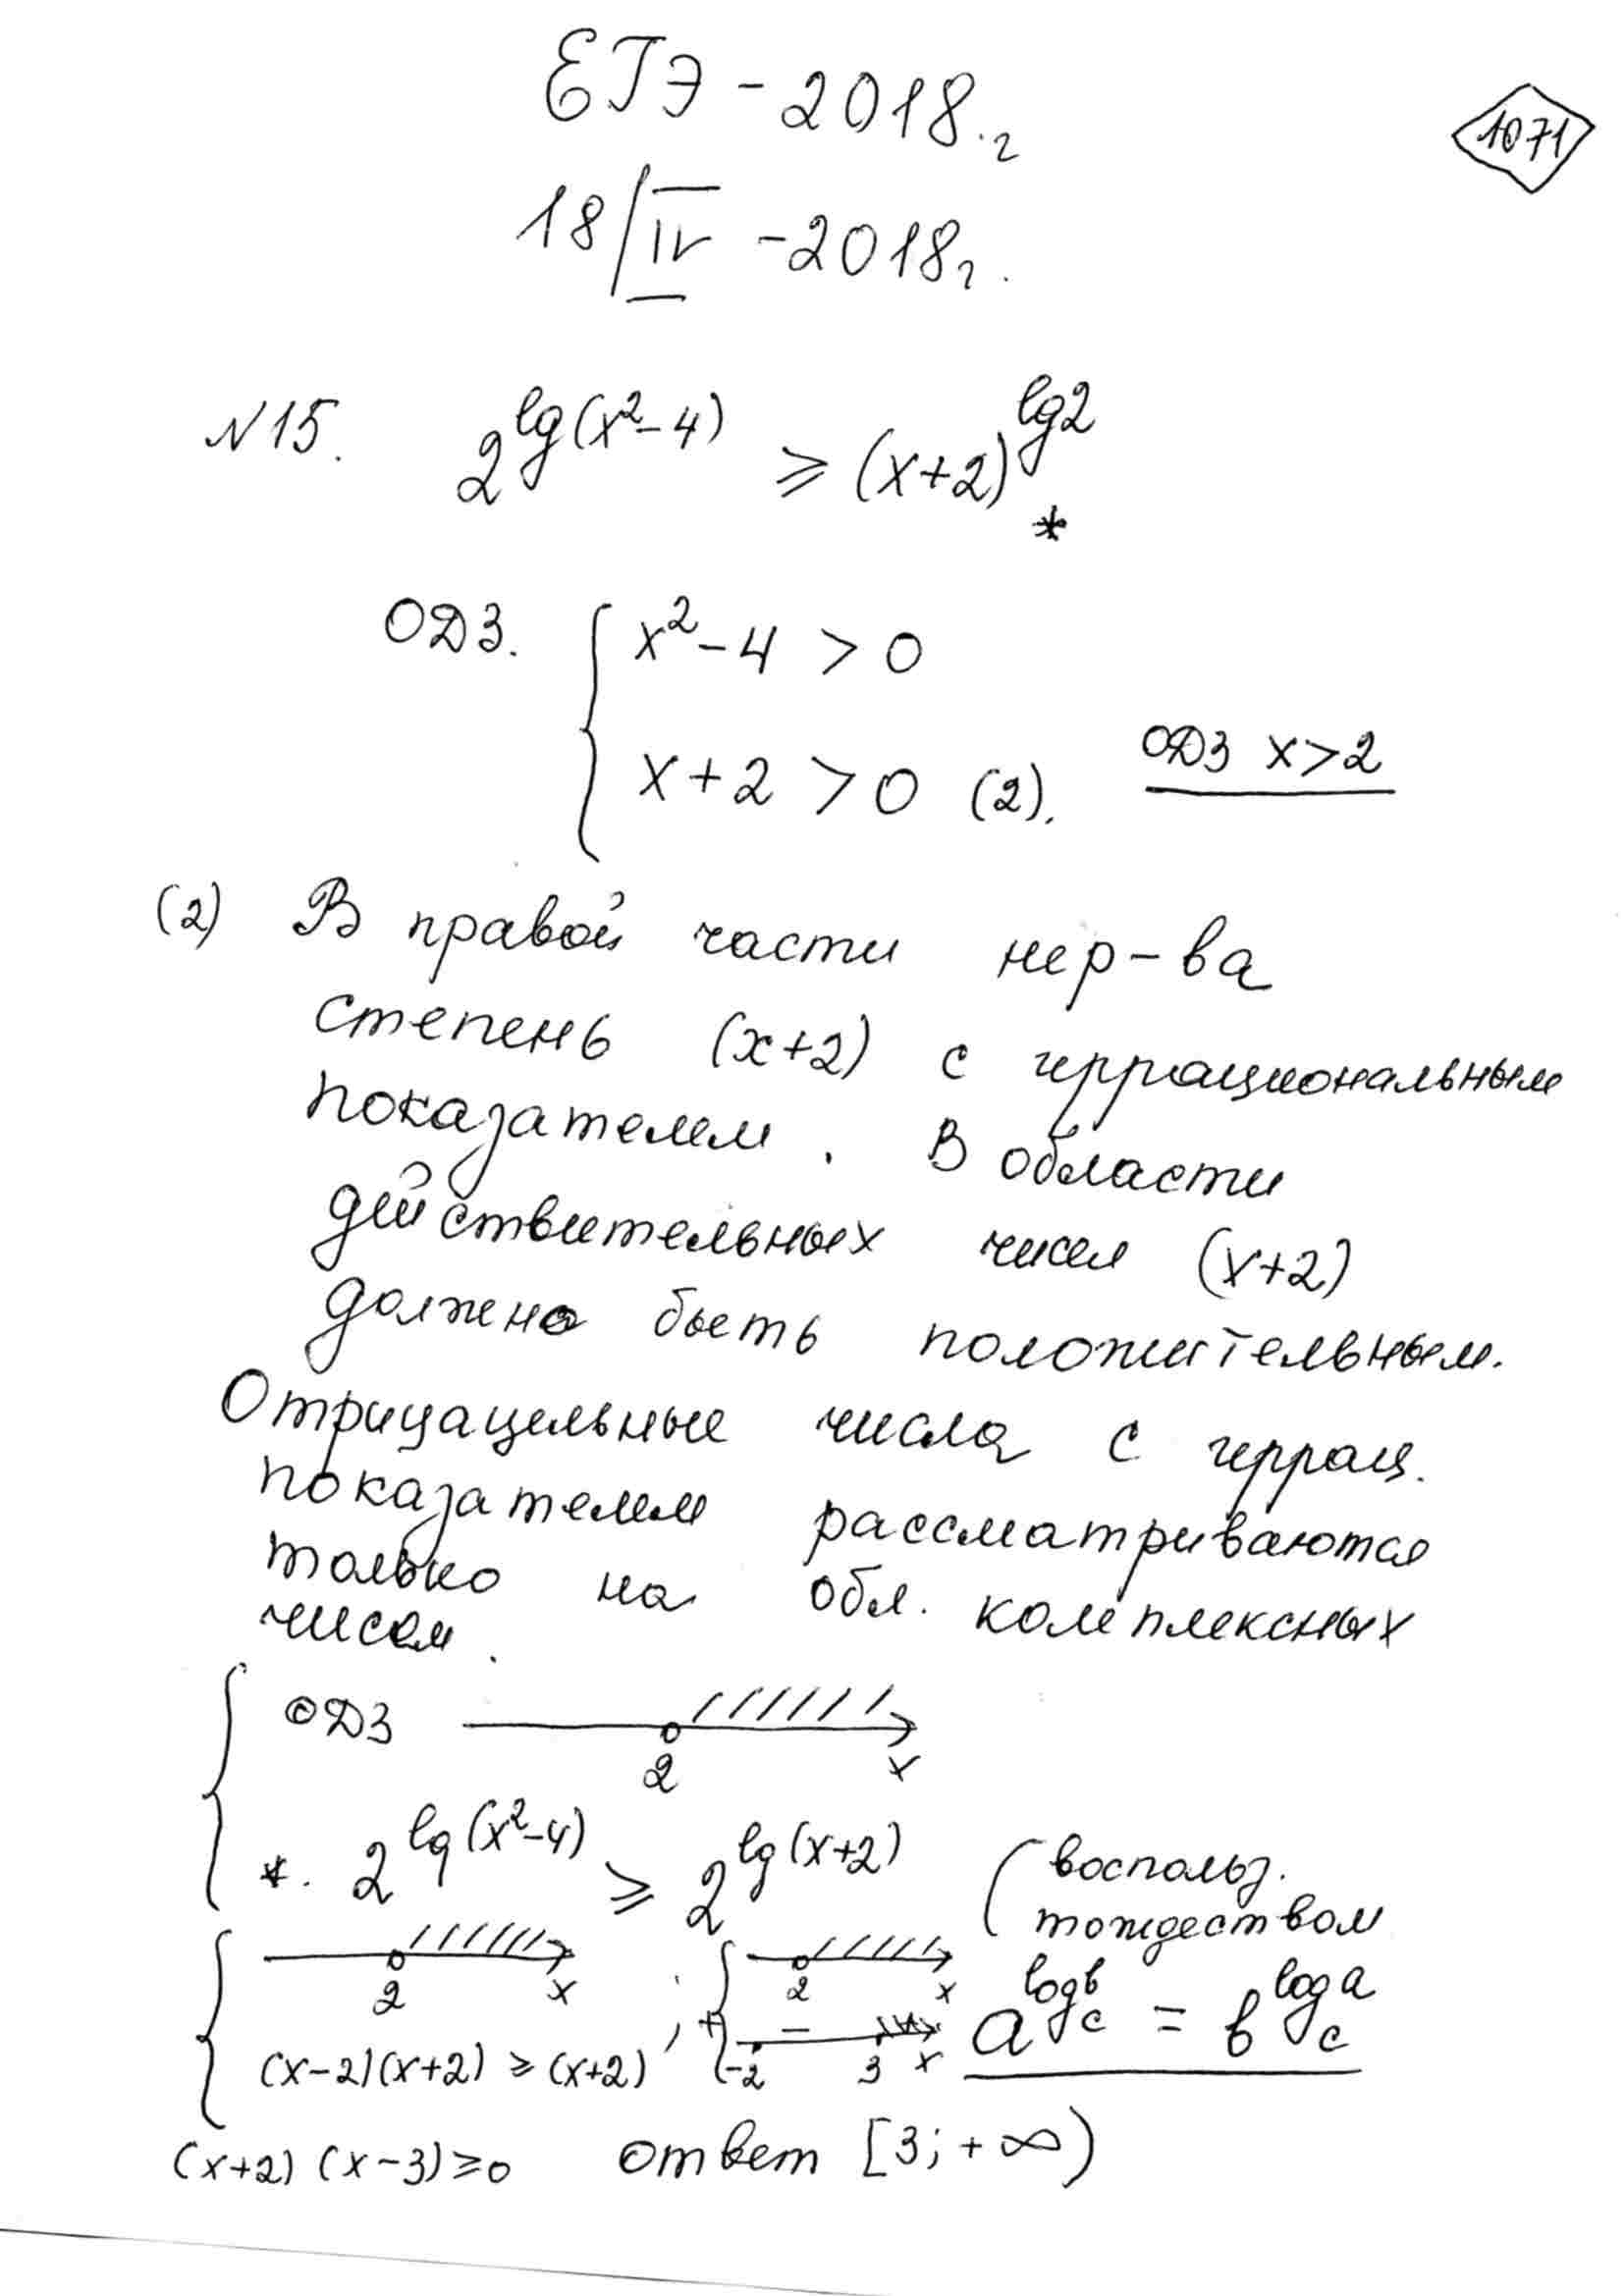 ЕГЭ - 2018.г
1071
18/IV - 2018г.
N15. 2^lg(x²-4) ⩾ (x+2)^lg2 *
ОДЗ. { x² - 4 > 0
x + 2 > 0 (2). ОДЗ x>2
(2) В правой части нер-ва
степень (x+2) с иррациональным
показателем. В области
действительных чисел (x+2)
должно быть положительным.
Отрицацельные числа с иррац.
показателем рассматриваются
только на обл. комплексных
чисел.
{ ОДЗ 2 x
*. 2^lg(x²-4) ⩾ 2^lg(x+2) ( воспольз.
тождеством
{ 2 x ; { 2 x
a^log_c b = b^log_c a
(x-2)(x+2) ⩾ (x+2) + - -2 3 x
(x+2)(x-3)⩾0 ответ [3; +∞)